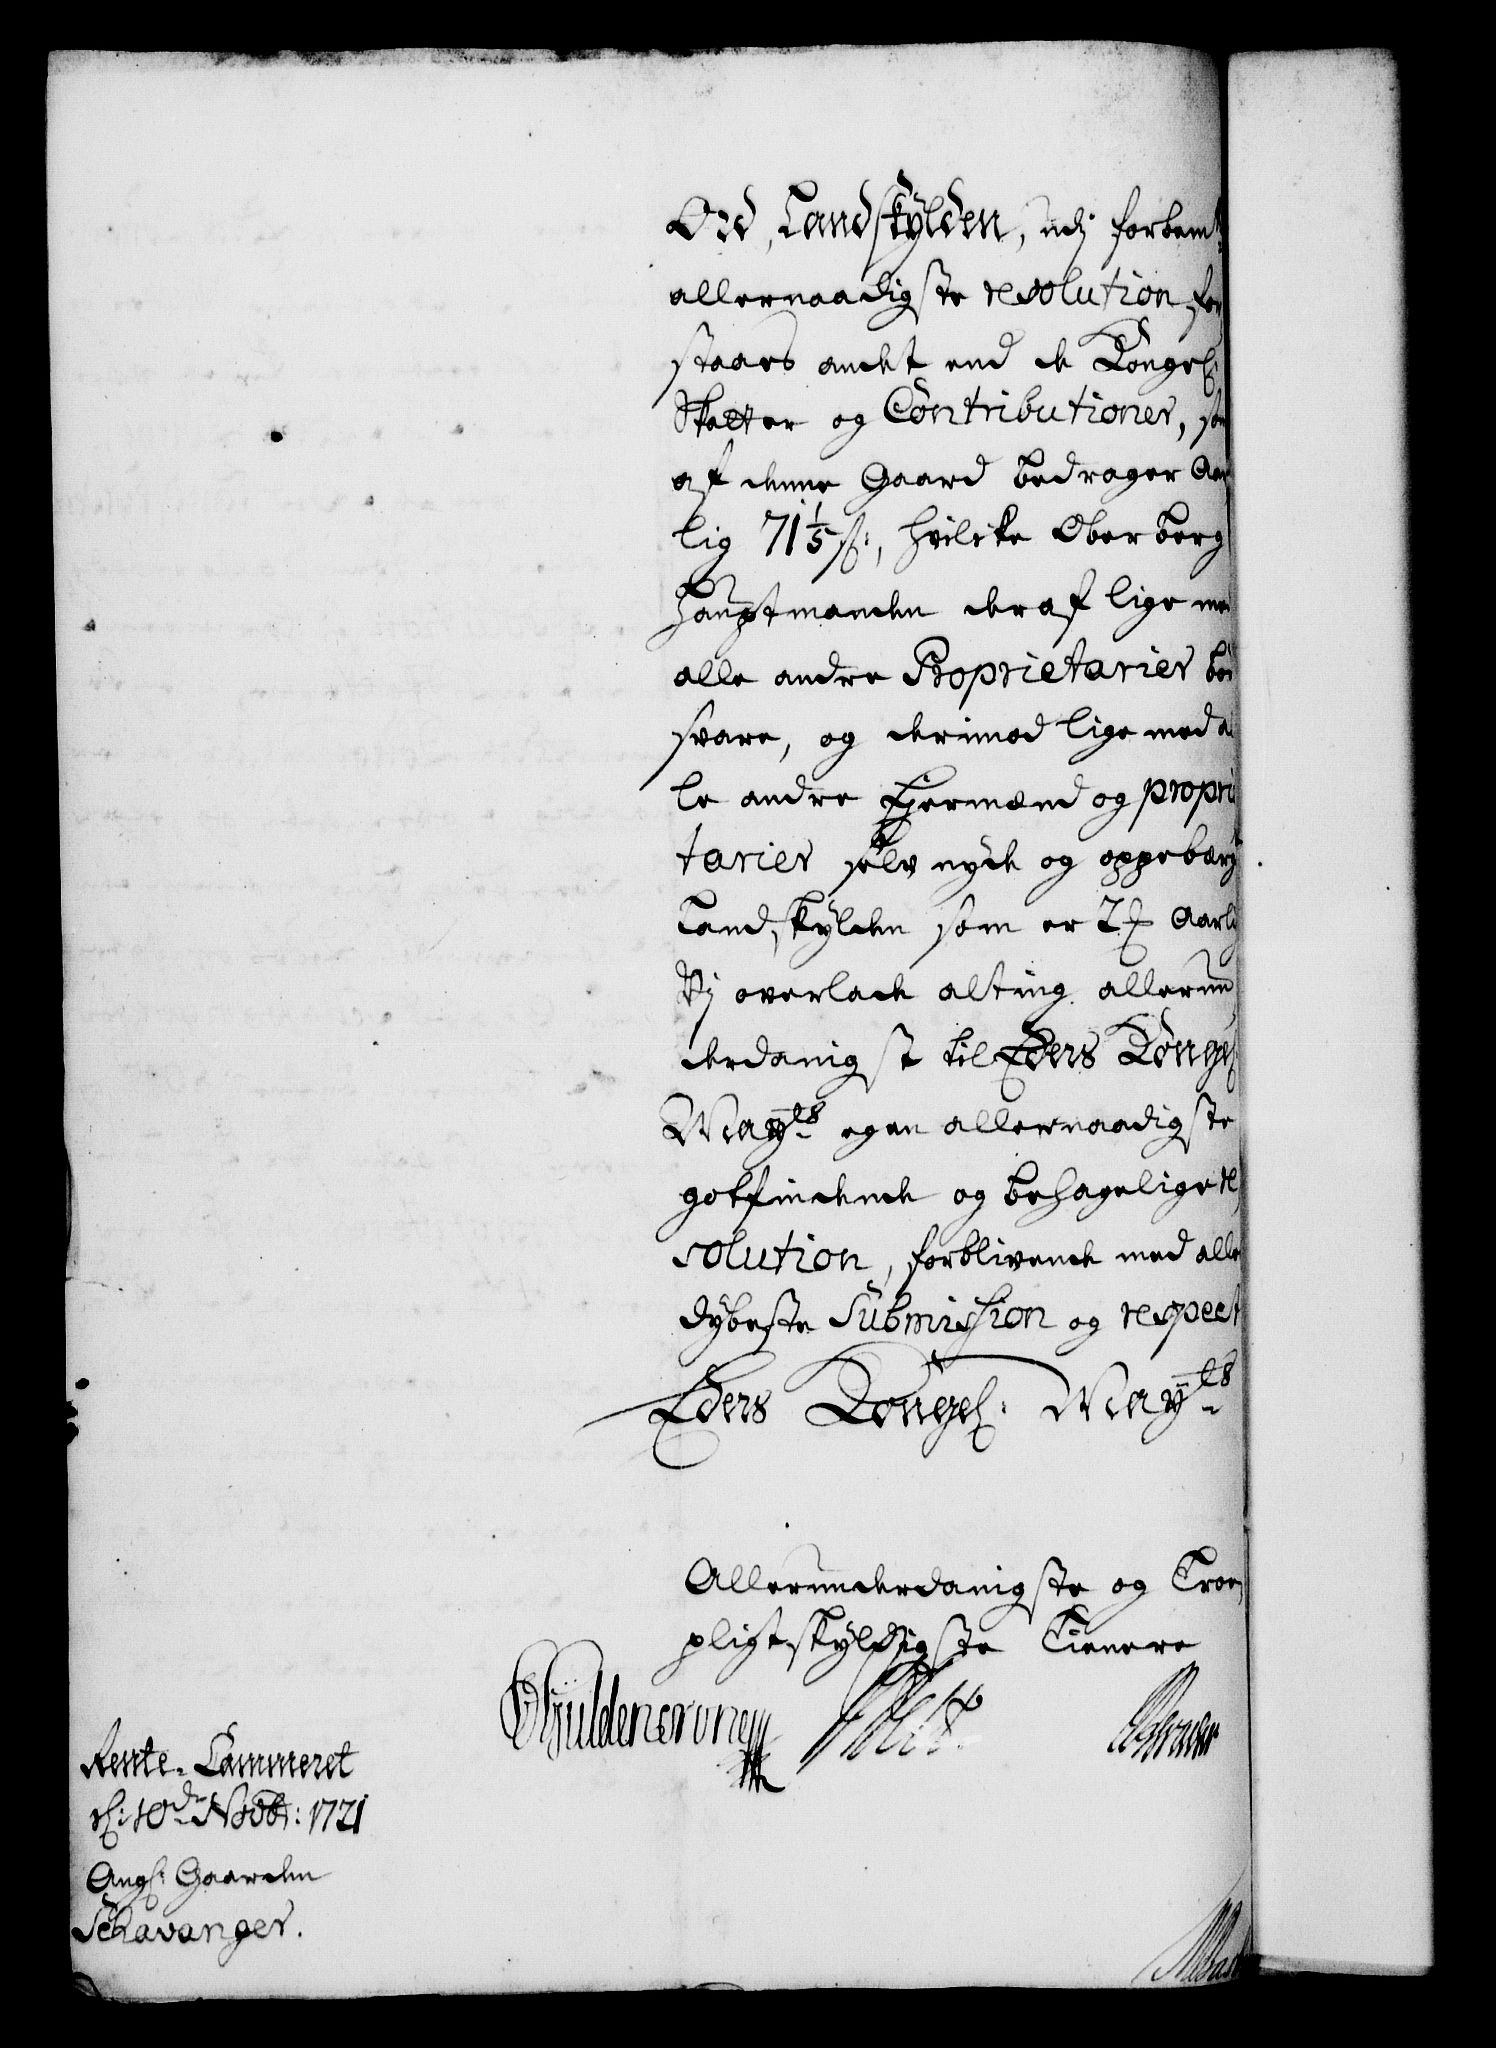 Ord, Landskylden, udj forbemt
allernaadigste resolution for
staaes andet end de Kongel:
Skatter og Contributioner, som
af denne Gaard bedrager Aar
lig 71 1/5 s:, hvilcke Ober berg
hauptmanden deraf lige med
alle andre Proprietarier bør
svare, og derimod lige med al
le andre Ejermænd og propri
tarier self nyde og oppebærge
Landskylden som er 2 Aarlig
Vj overlade alting allerun
derdanigst til Eders Kongel
Mayts egen allernaadigste
gotfindende og behagelige re
solution, forblivende med aller
dybeste Submission og respect
Eders Kongel: Mayts
Allerunderdanigste og Troe
pligtskyldigste Tienere
Gyldencrone
Rente-Cammeret
d: 10de Novbr: 1721
Angl: Gaarden
Schavanger.